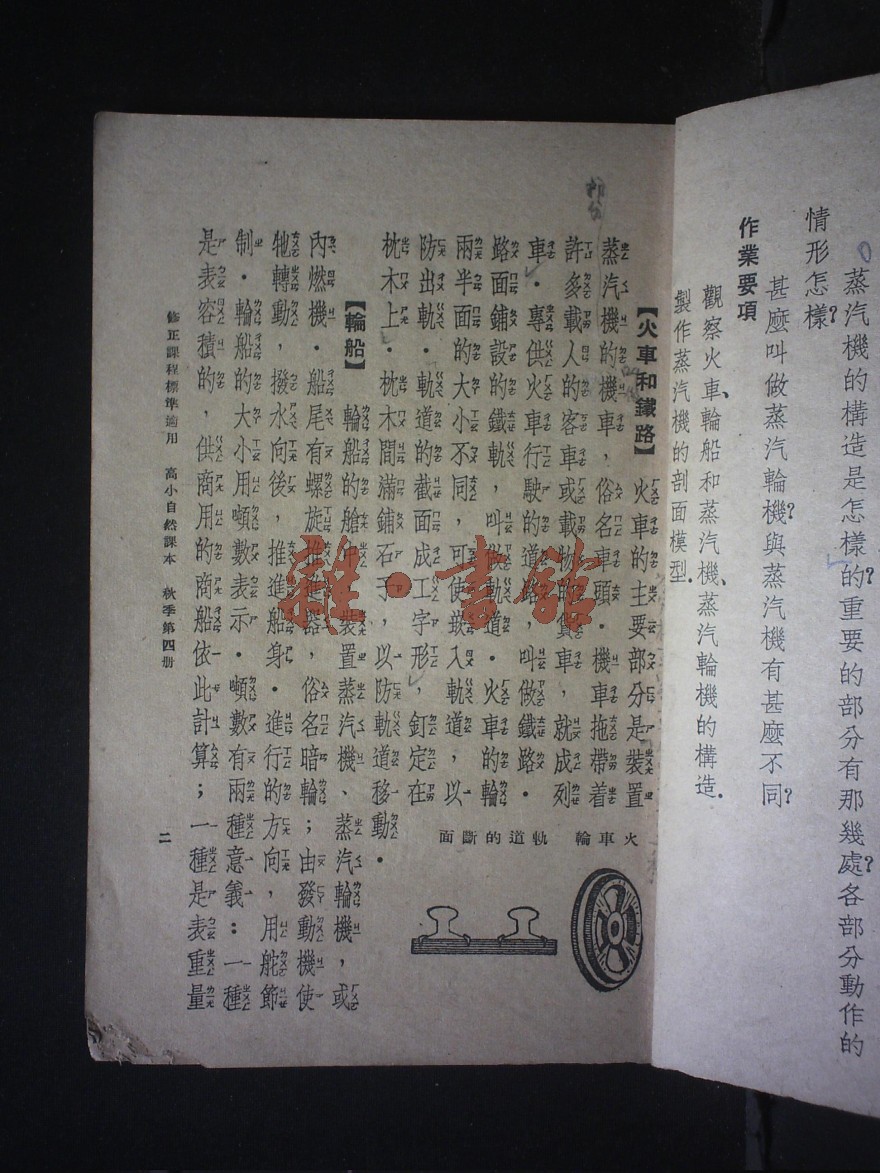 蒸汽機的構造是怎樣的?重要的部分有那幾處?各部分動作的
情形怎樣?
甚麼叫做蒸汽輪機?與蒸汽機有甚麼不同?
作業要項
觀察火車、輪船和蒸汽機、蒸汽輪機的構造.
製作蒸汽機的剖面模型.
【火車和鐵路】 火車的主要部分是裝置
蒸汽機的機車,俗名車頭.機車拖帶着
許多載人的客車或載物的貨車,就成列
車.專供火車行駛的道路,叫做鐵路.
路面鋪設的鐵軌,叫做軌道.火車的輪
兩半面的大小不同,可使嵌入軌道,以
防出軌.軌道的截面成工字形,釘定在
枕木上.枕木間滿鋪石子,以防軌道移動.
【輪船】 輪船的艙中,裝置蒸汽機、蒸汽輪機,或
內燃機.船尾有螺旋推進器,俗名暗輪;由發動機使
牠轉動,撥水向後,推進船身.進行的方向,用舵節
制.輪船的大小用噸數表示.噸數有兩種意義:一種
是表容積的,供商用的商船依此計算;一種是表重量
火車輪
軌道的斷面
修正課程標準適用 高小自然課本 秋季第四册
二
雜·書館